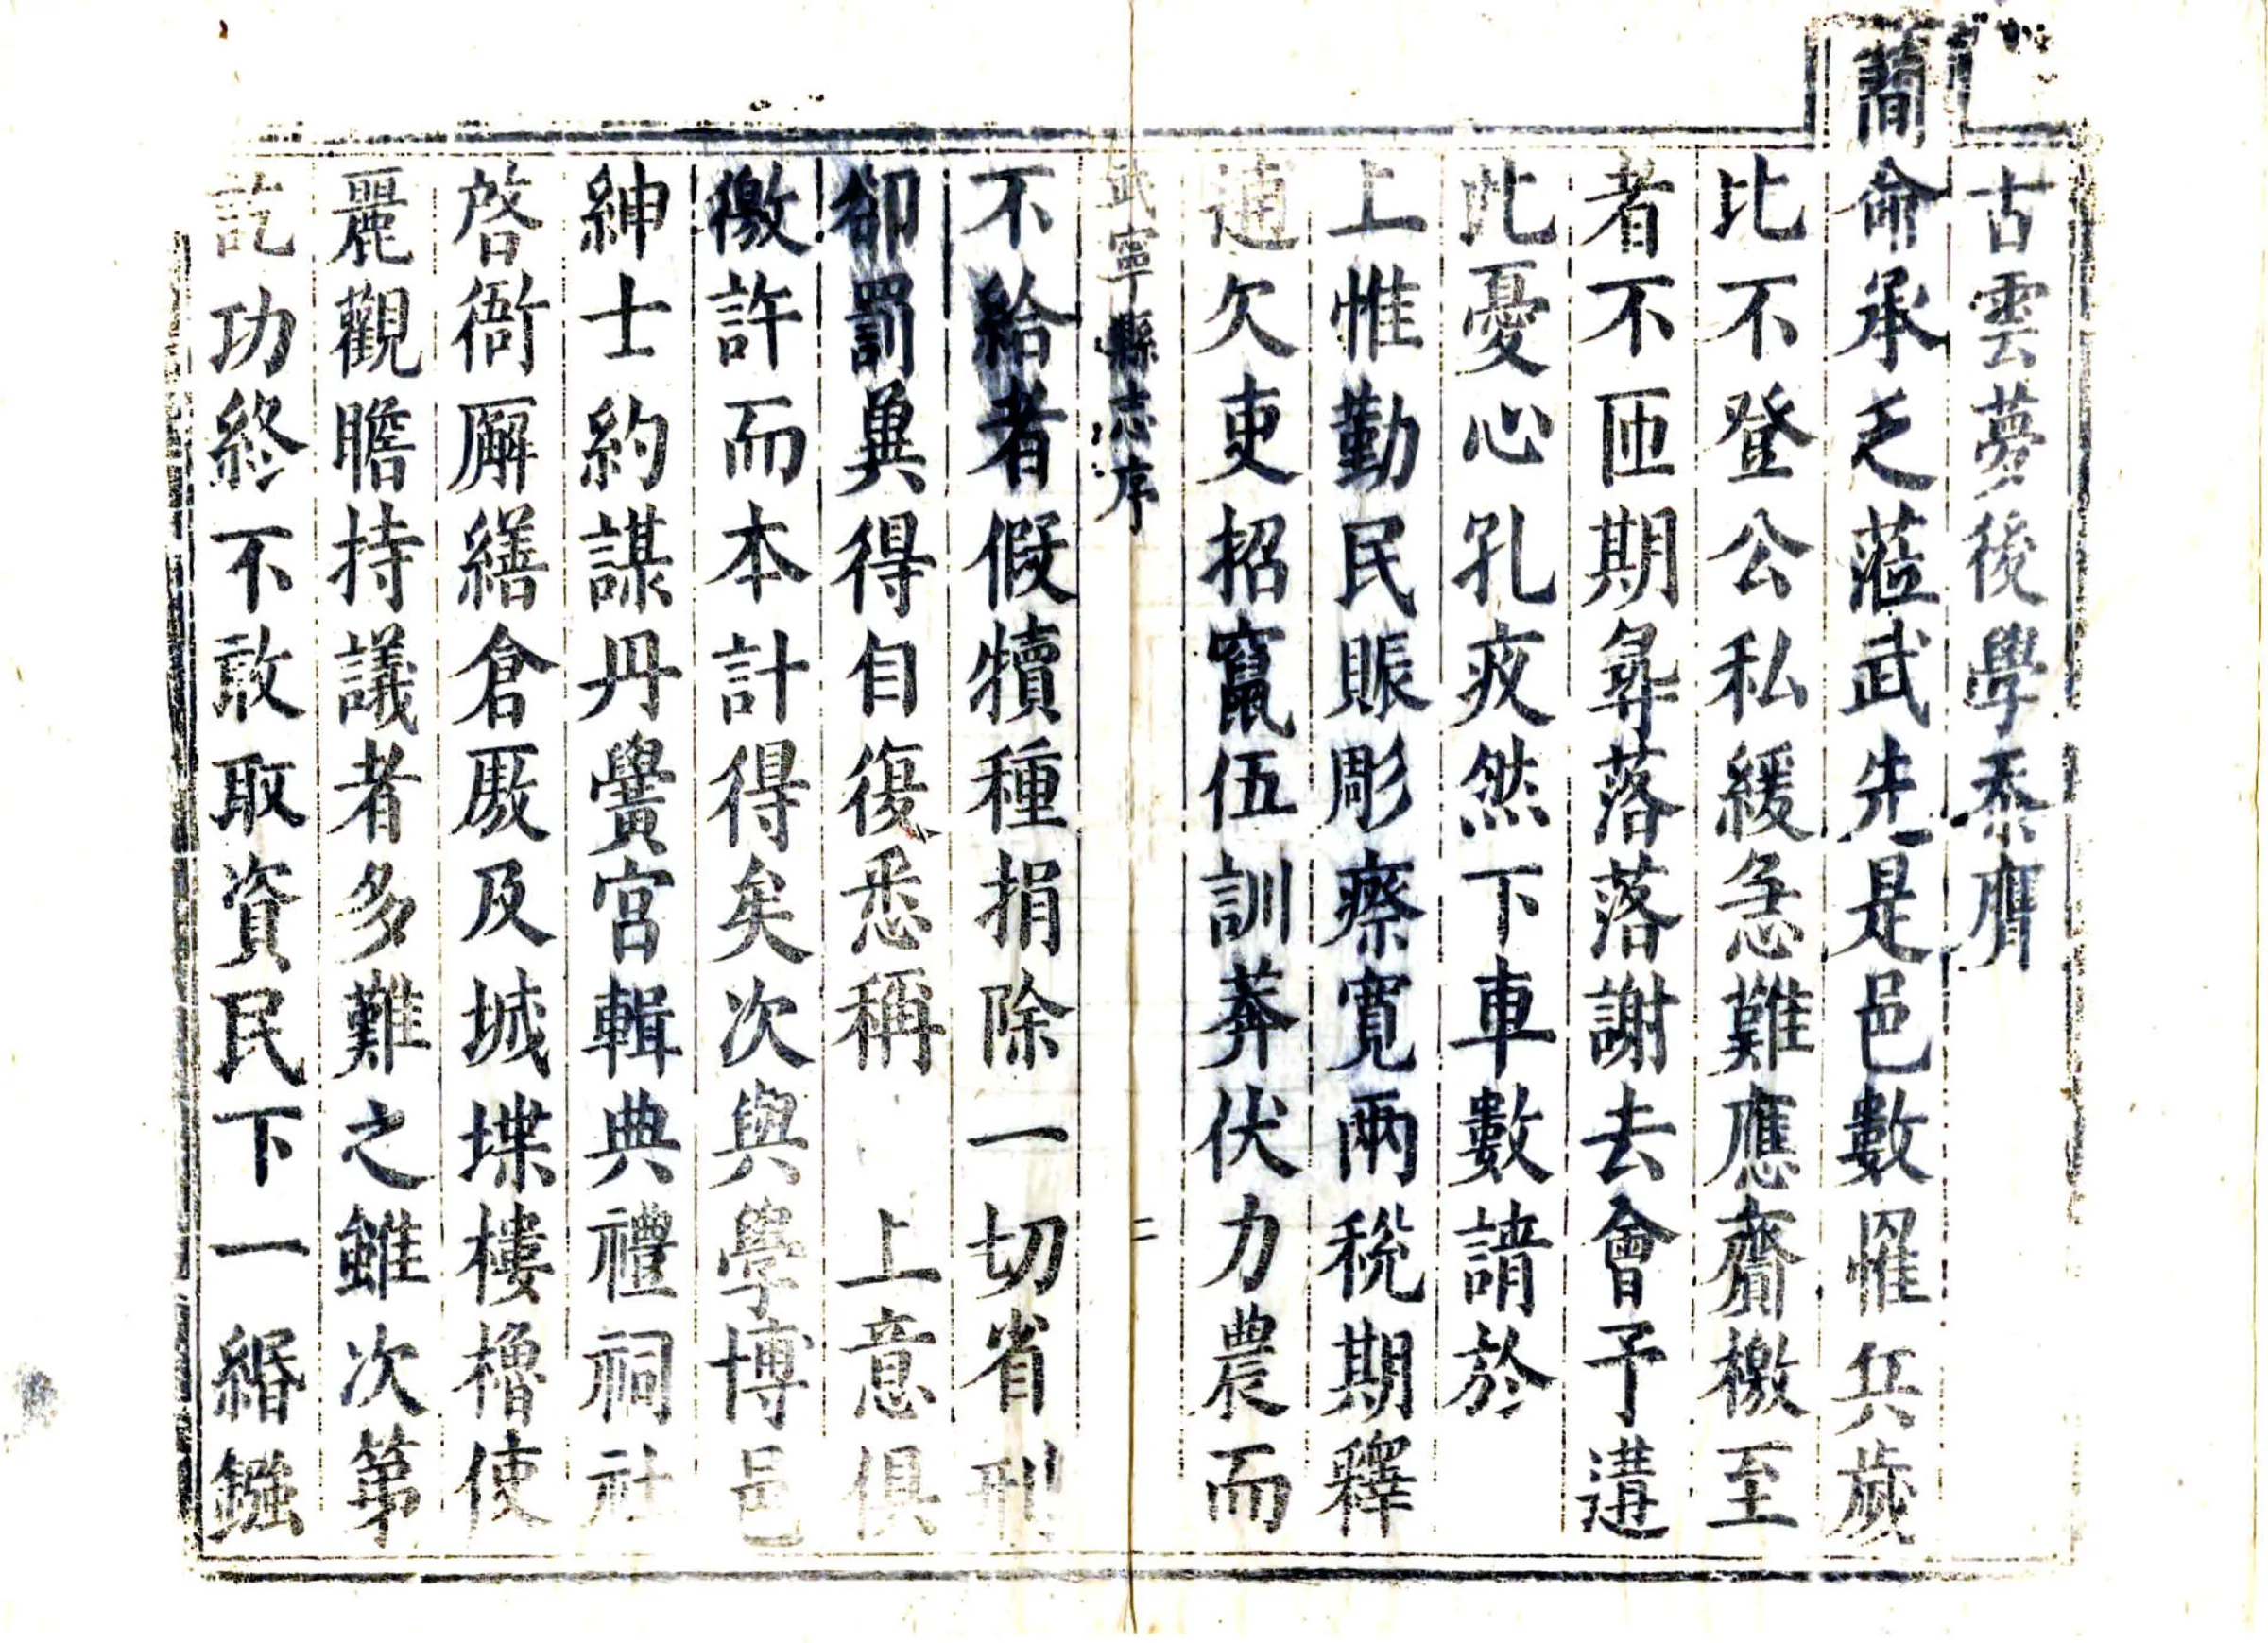 古雲夢後學忝膺
簡命承乏蒞武先是邑數罹兵歲
比不登公私緩急難應齎檄至
者不匝期彛落落謝去會予遘
此憂心孔疚然下車數請於
上惟勤民賑彫瘵寬兩稅期釋
逋欠吏招竄伍訓莽伏力農而
武寧縣志序
二
不給者假犢種捐除一切省刑
卻罰兾得自復悉稱　上意俱
徼許而本計得矣次與學博邑
紳士約謀丹黌宮輯典禮祠社
啓衙廨繕倉厫及城堞樓櫓使
麗觀瞻持議者多難之雖次第
訖功終不敢取資民下一緡鏹